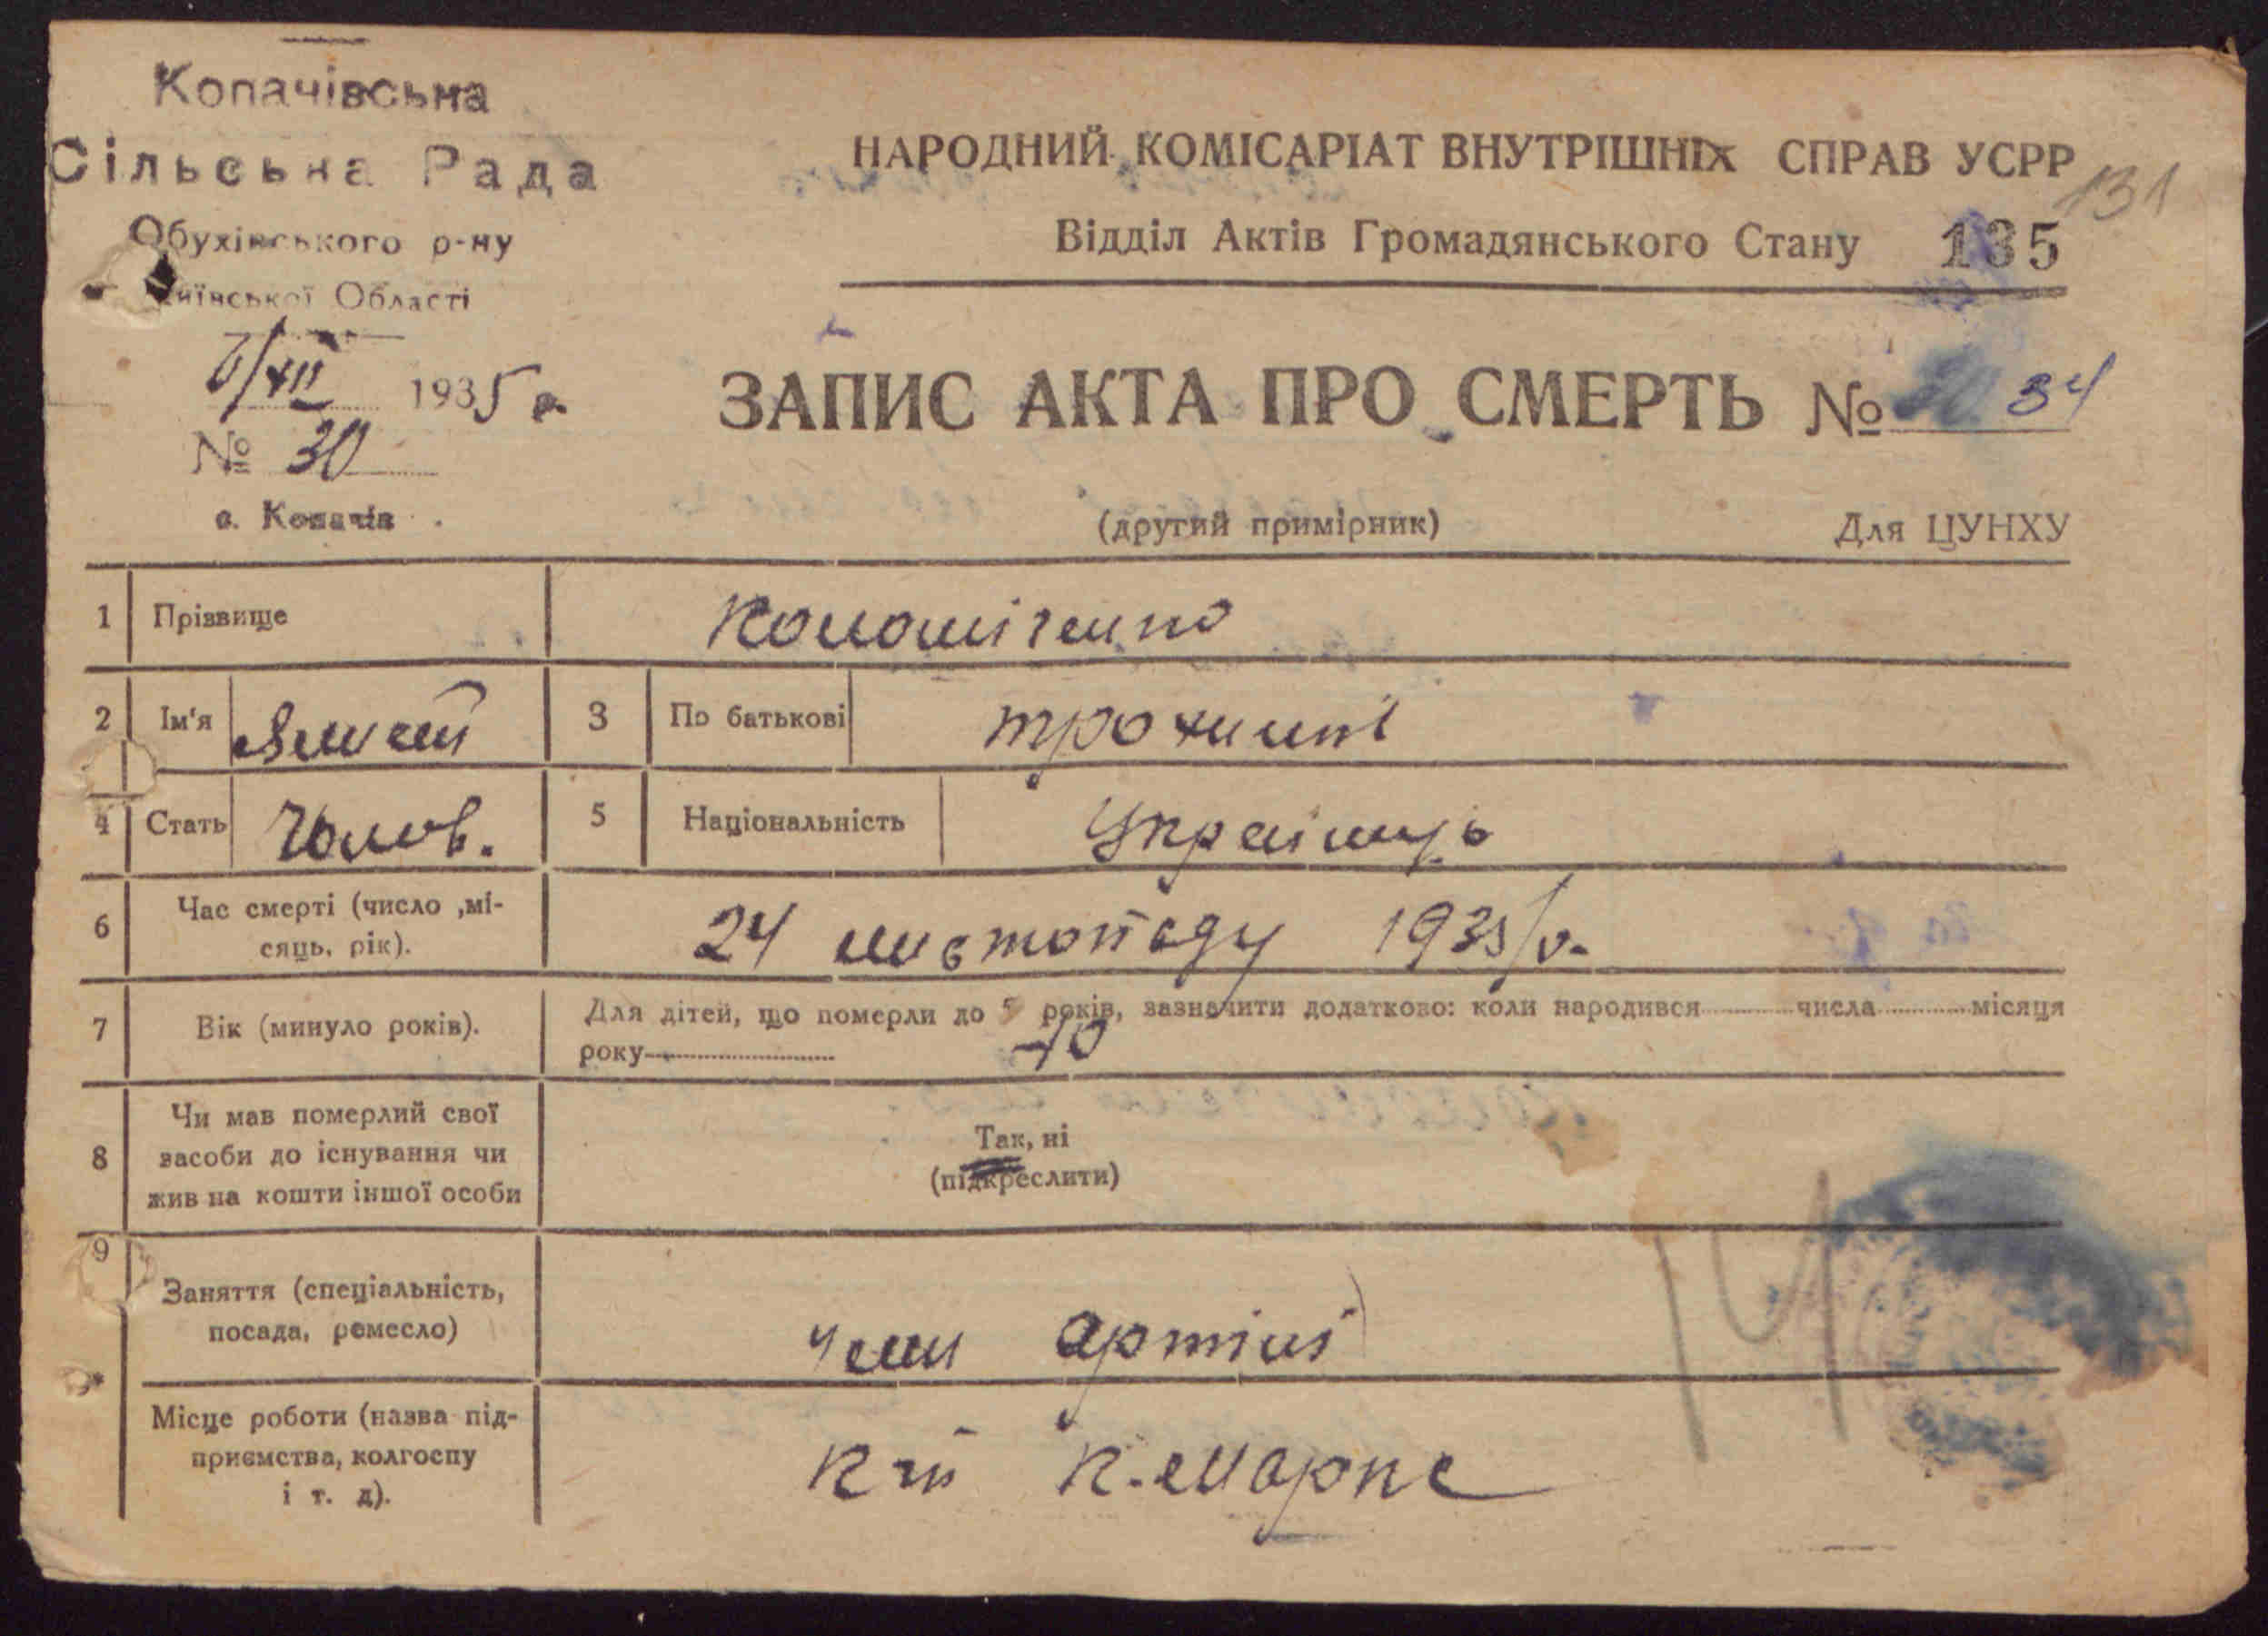 Копачівська
Сільська Рада
Обухівського р-ну
Київської Області
6/XII 1935 р.
№ 30
с. Копачів
НАРОДНИЙ КОМІСАРІАТ ВНУТРІШНІХ СПРАВ УСРР
131
Відділ Актів Громадянського Стану 135
ЗАПИС АКТА ПРО СМЕРТЬ № 34
(другий примірник)
Для ЦУНХУ
1 Прізвище
2 Ім'я 3 По батькові
4 Стать Чолов. 5 Національність Українць
6 Час смерті (число ,мі-
сяць, рік).
24 листопаду 1935/р.
7 Вік (минуло років).
Для дітей, що померли до 5 років, зазначити додатково: коли народився числа місяця
року 70
8 Чи мав померлий свої
засоби до існування чи
жив на кошти іншої особи
Так, ні
(підкреслити)
9 Заняття (спеціальність,
посада, ремесло)
член артілі
Місце роботи (назва під-
приємства, колгоспу
і т. д).
К. Маркс